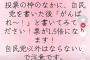 投票の枠のなかに、自民
党を書いた後「がんば
れ〜！」と書いてみて
ください！票が1.5倍にな
ります！
自民党以外はならないい
で注意です。